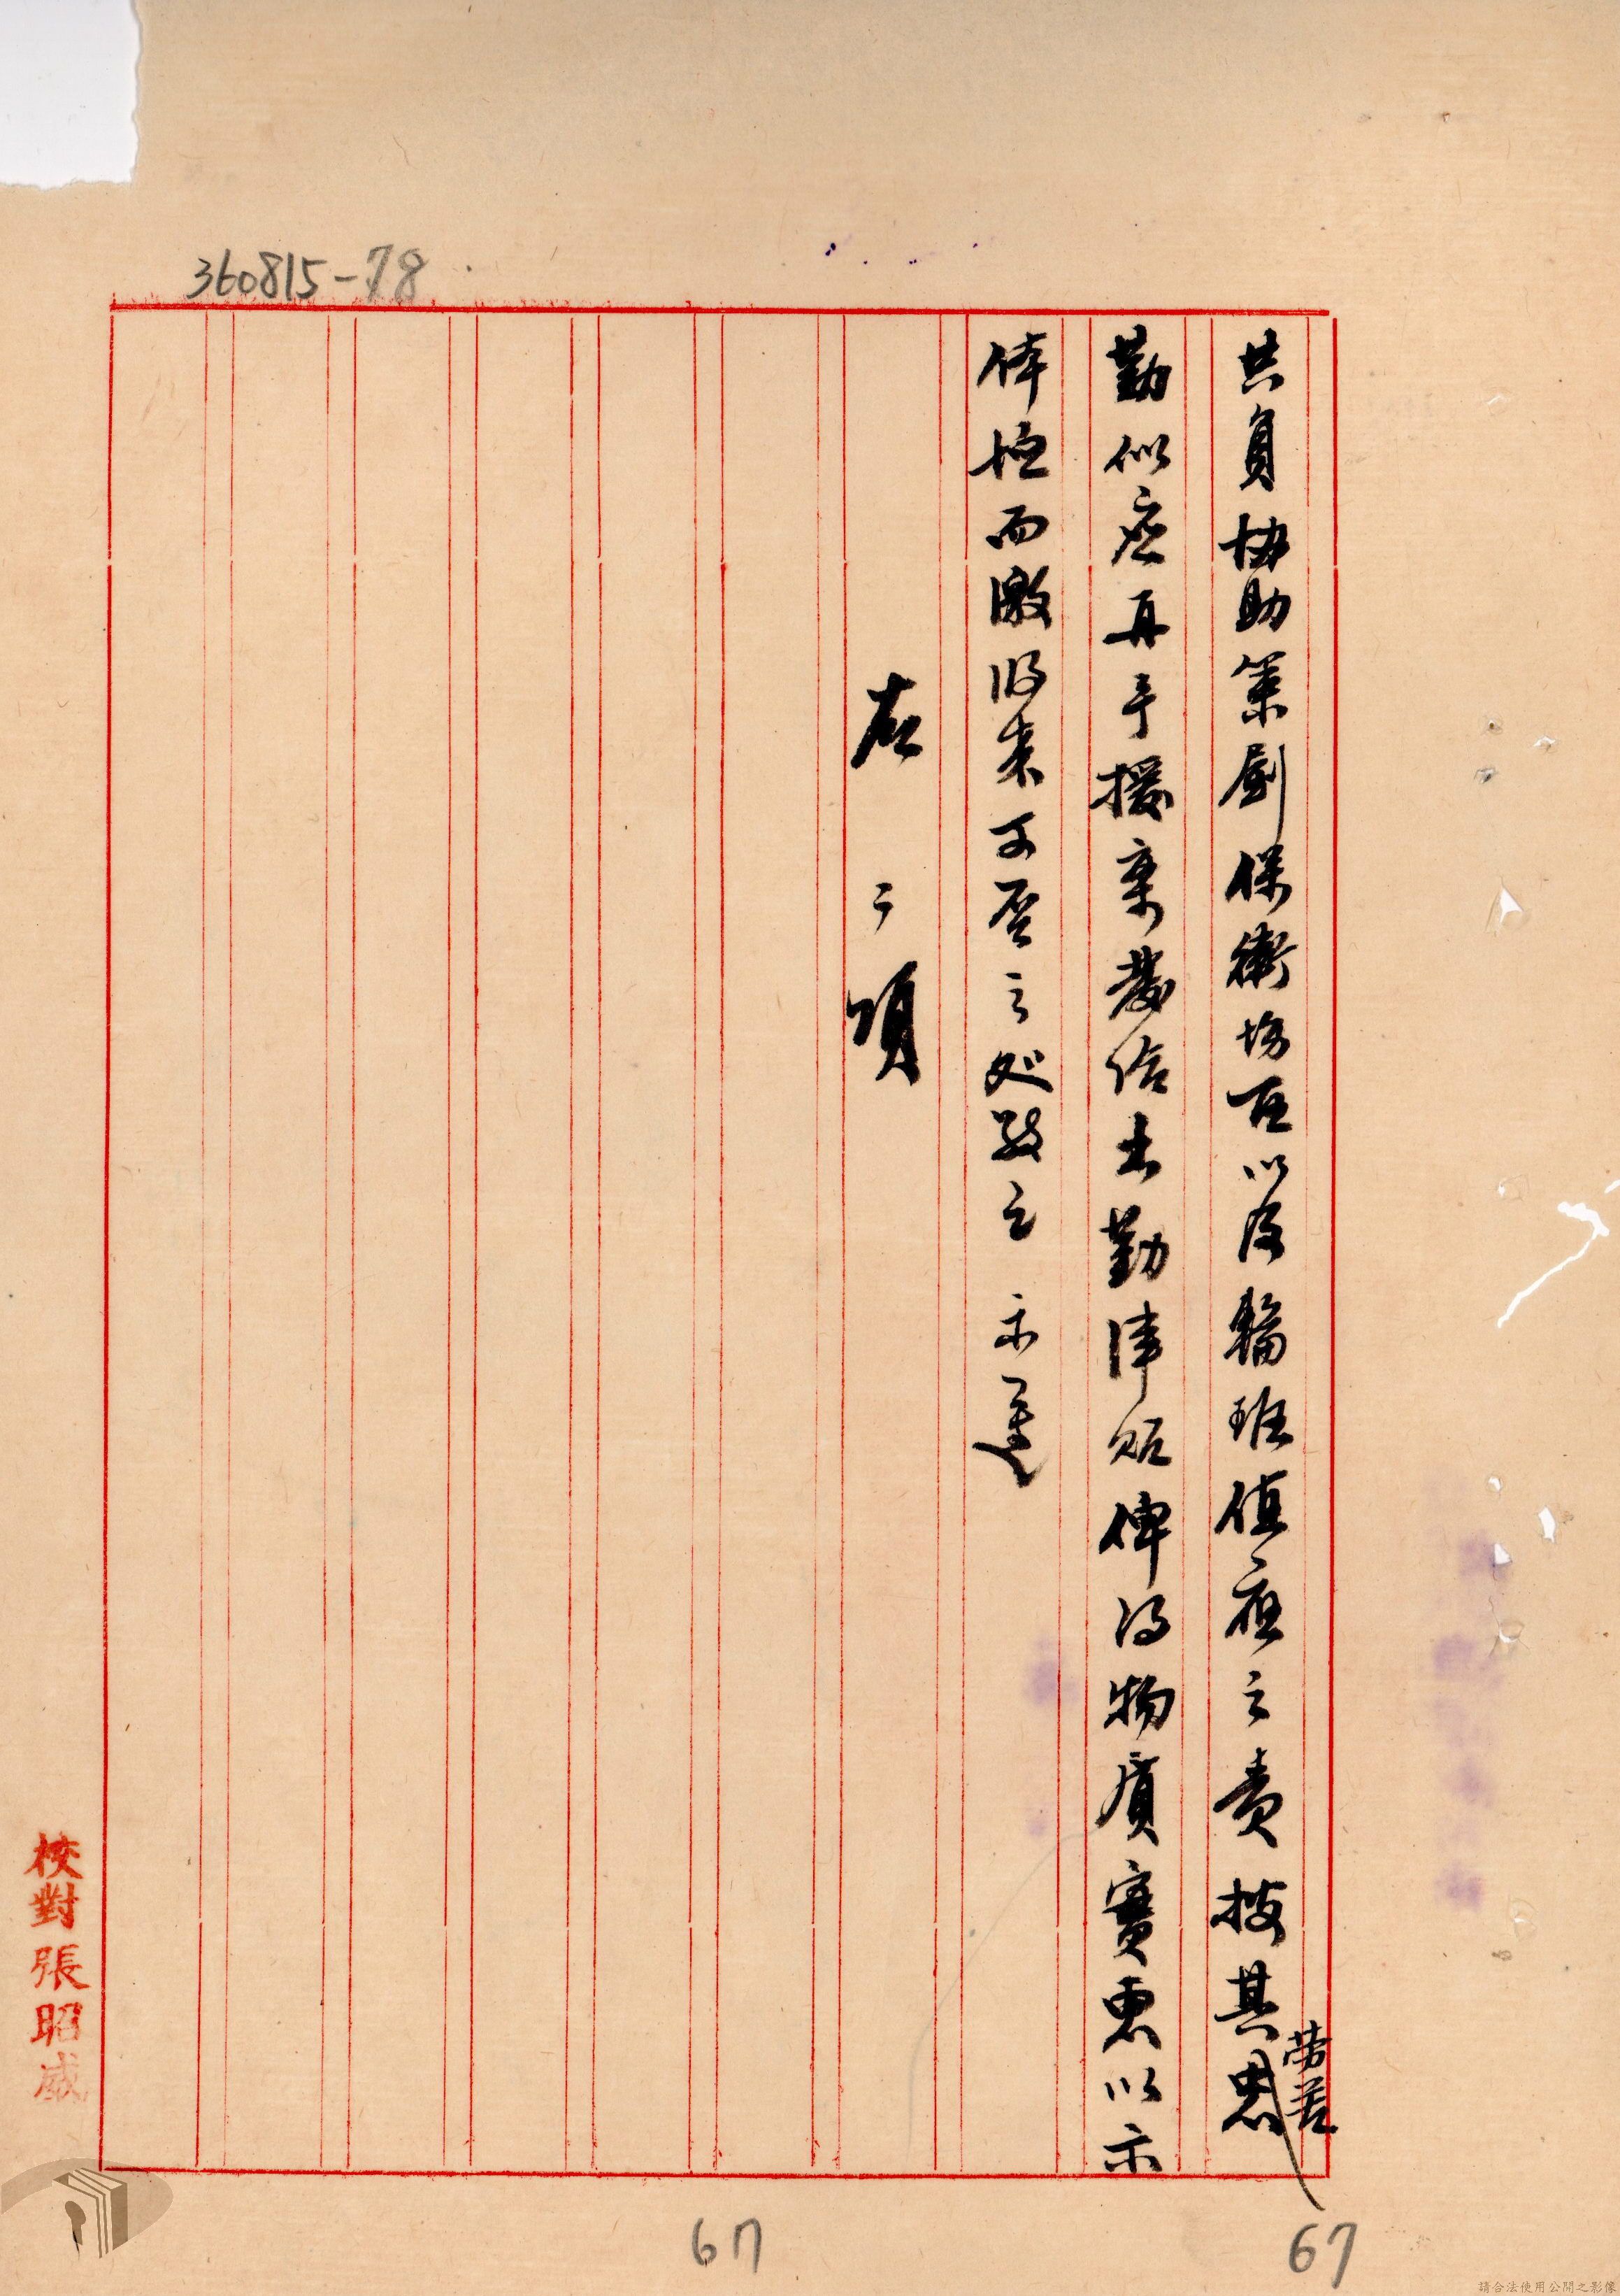 360815-78
共負協助策劃保衛坊區以及輪班值夜之責按其
勞若
勤似應再予援案發給出勤津貼俾得物質實惠以示
体恤而激將來可否之處敬乞示遵
右三項
校對張昭威
67
67
請合法使用公開之影像